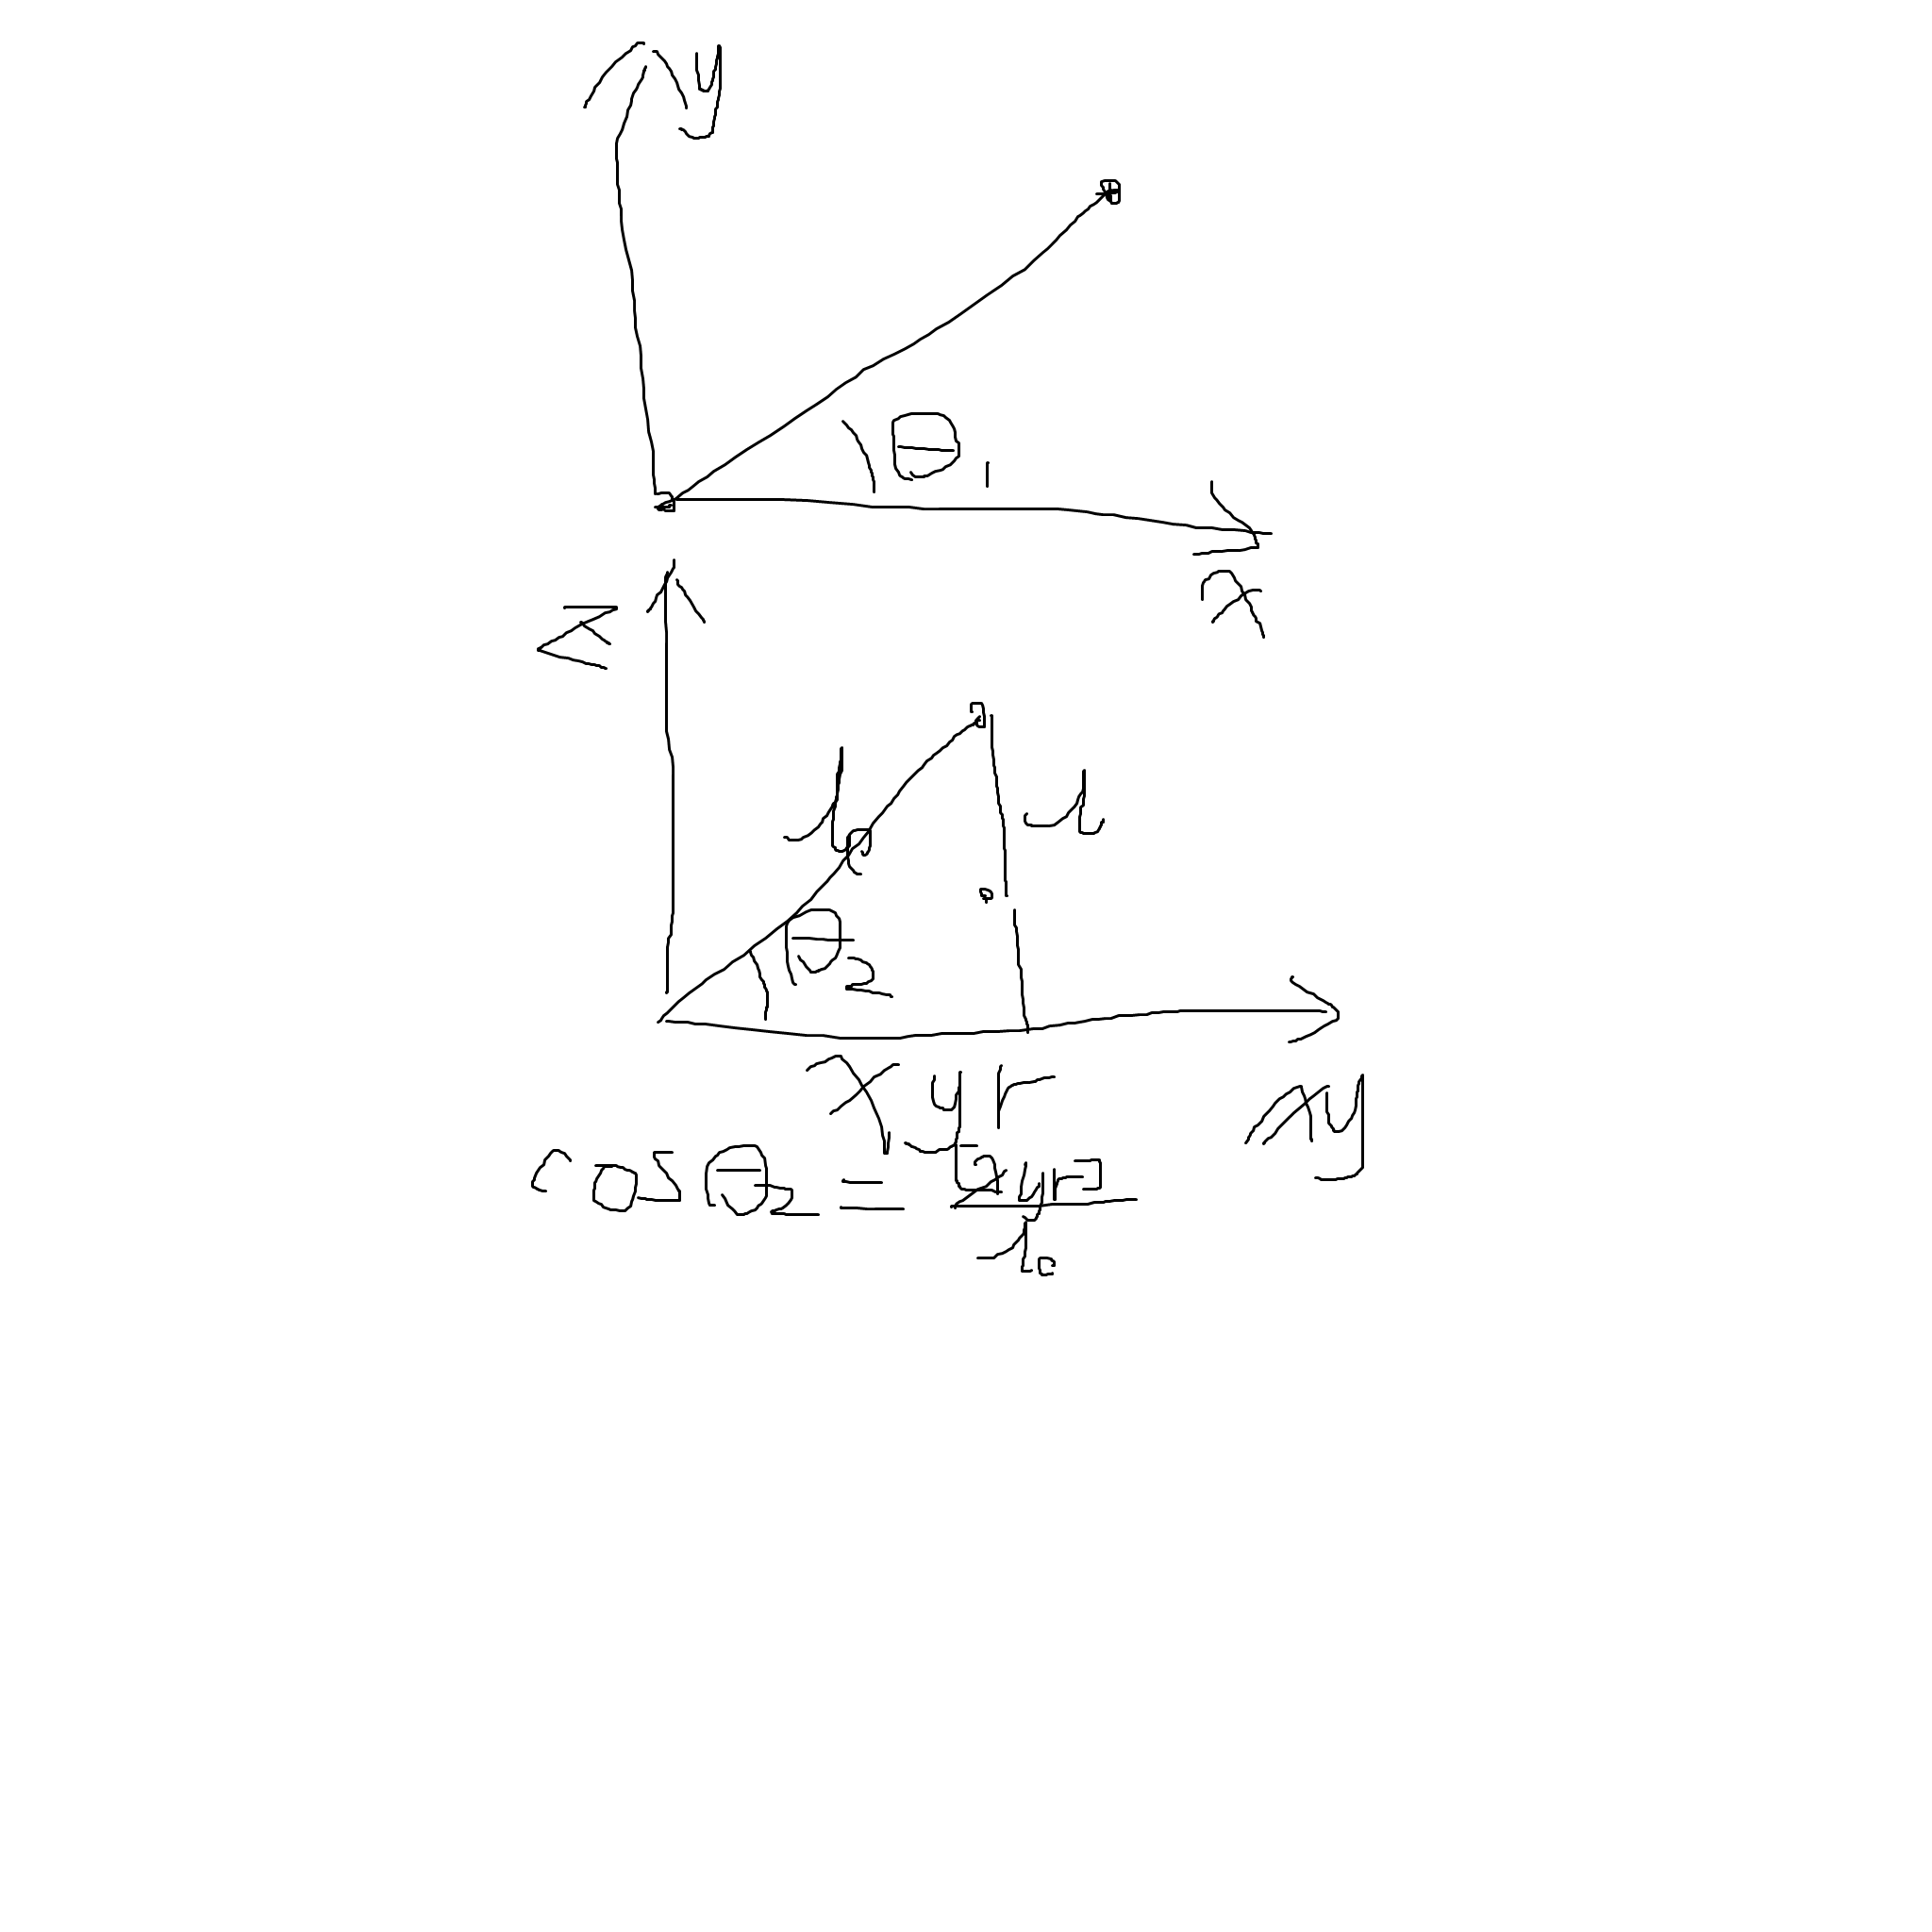 y
θ1
x
z
θ2
x,yr
xy
cosθ2 = [x,yr]